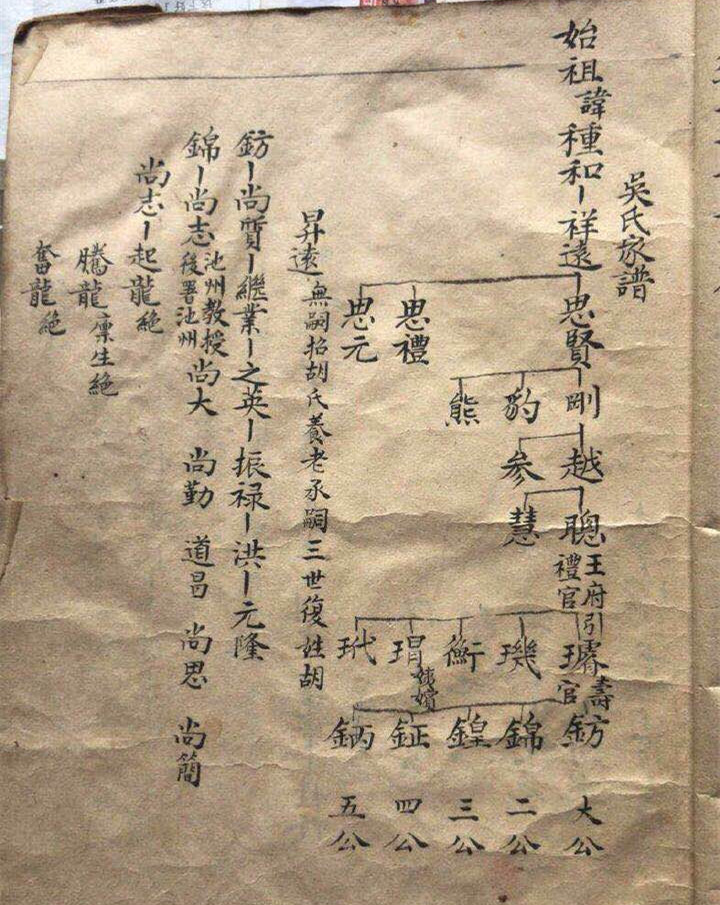 吳氏家譜
始祖諱種和祥遠思賢
思禮
思元
剛
豹
熊
越
参
聰 王府引禮官
慧
璿 壽官
璣
衡
玳
鈁
錦
鍠
鉦
鈵
大公
二公
三公
四公
五公
昇遠無嗣招胡氏養老承嗣三世復姓胡
鈁尚質繼業之英振禄洪元隆
錦尚志 池州教授後署池州 尚大 尚勤 道昌 尚思 尚簡
尚志起龍絶
騰龍廩生絶
奮龍絶